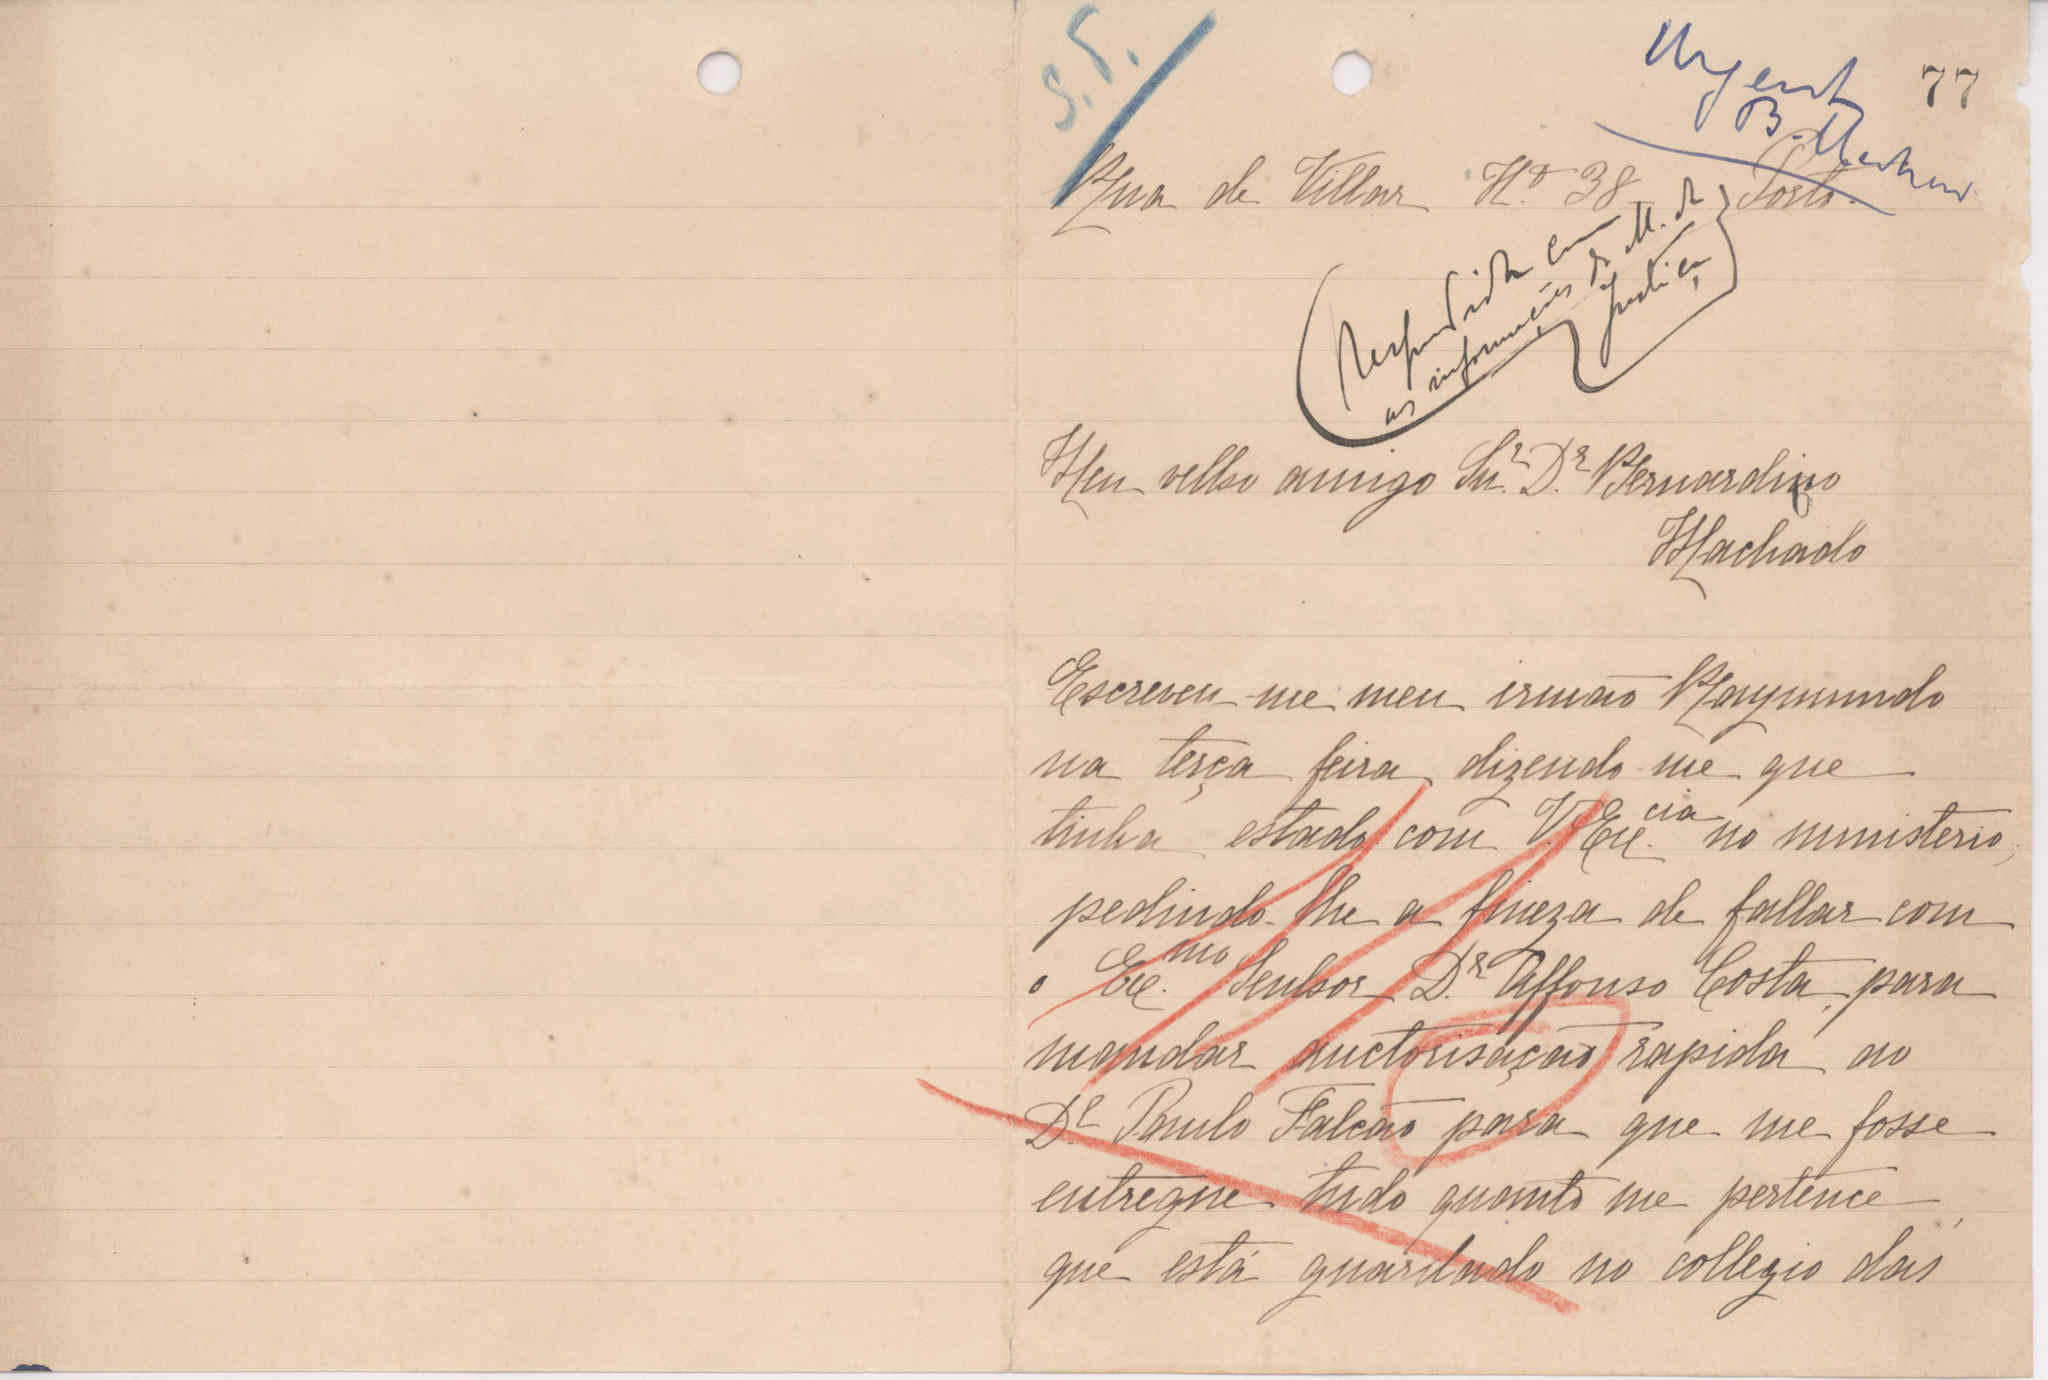 S.T.
Urgente
B. Machado
77
Rua de Villar Nº 38 Porto.
(Respondida com
as informações do M. da
Justiça)
Meu velho amigo Snr. Dr. Bernardino
Machado
Escreveu-me meu irmão Raymundo
na terça feira, dizendo-me que
tinha estado com V. Excia no ministerio,
pedindo-lhe a fineza de fallar com
o Exmo Senhor Dr. Affonso Costa, para
mandar auctorisação rapida ao
Dr. Paulo Falcão para que me fosse
entregue tudo quanto me pertence,
que está guardado no collegio das